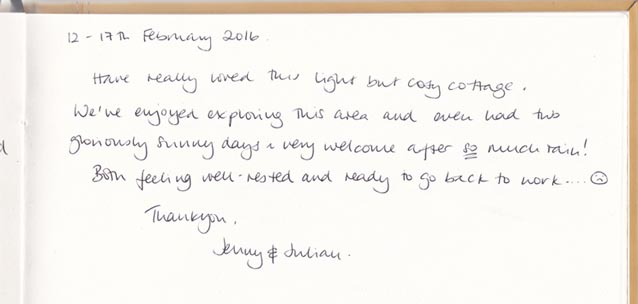 12 - 17th February 2016.
Have really loved this light but cosy cottage.
We've enjoyed exploring this area and even had two
gloriously sunny days - very welcome after so much rain!
Both feeling well-rested and ready to go back to work.... ☹
Thankyou,
Jenny & Julian.